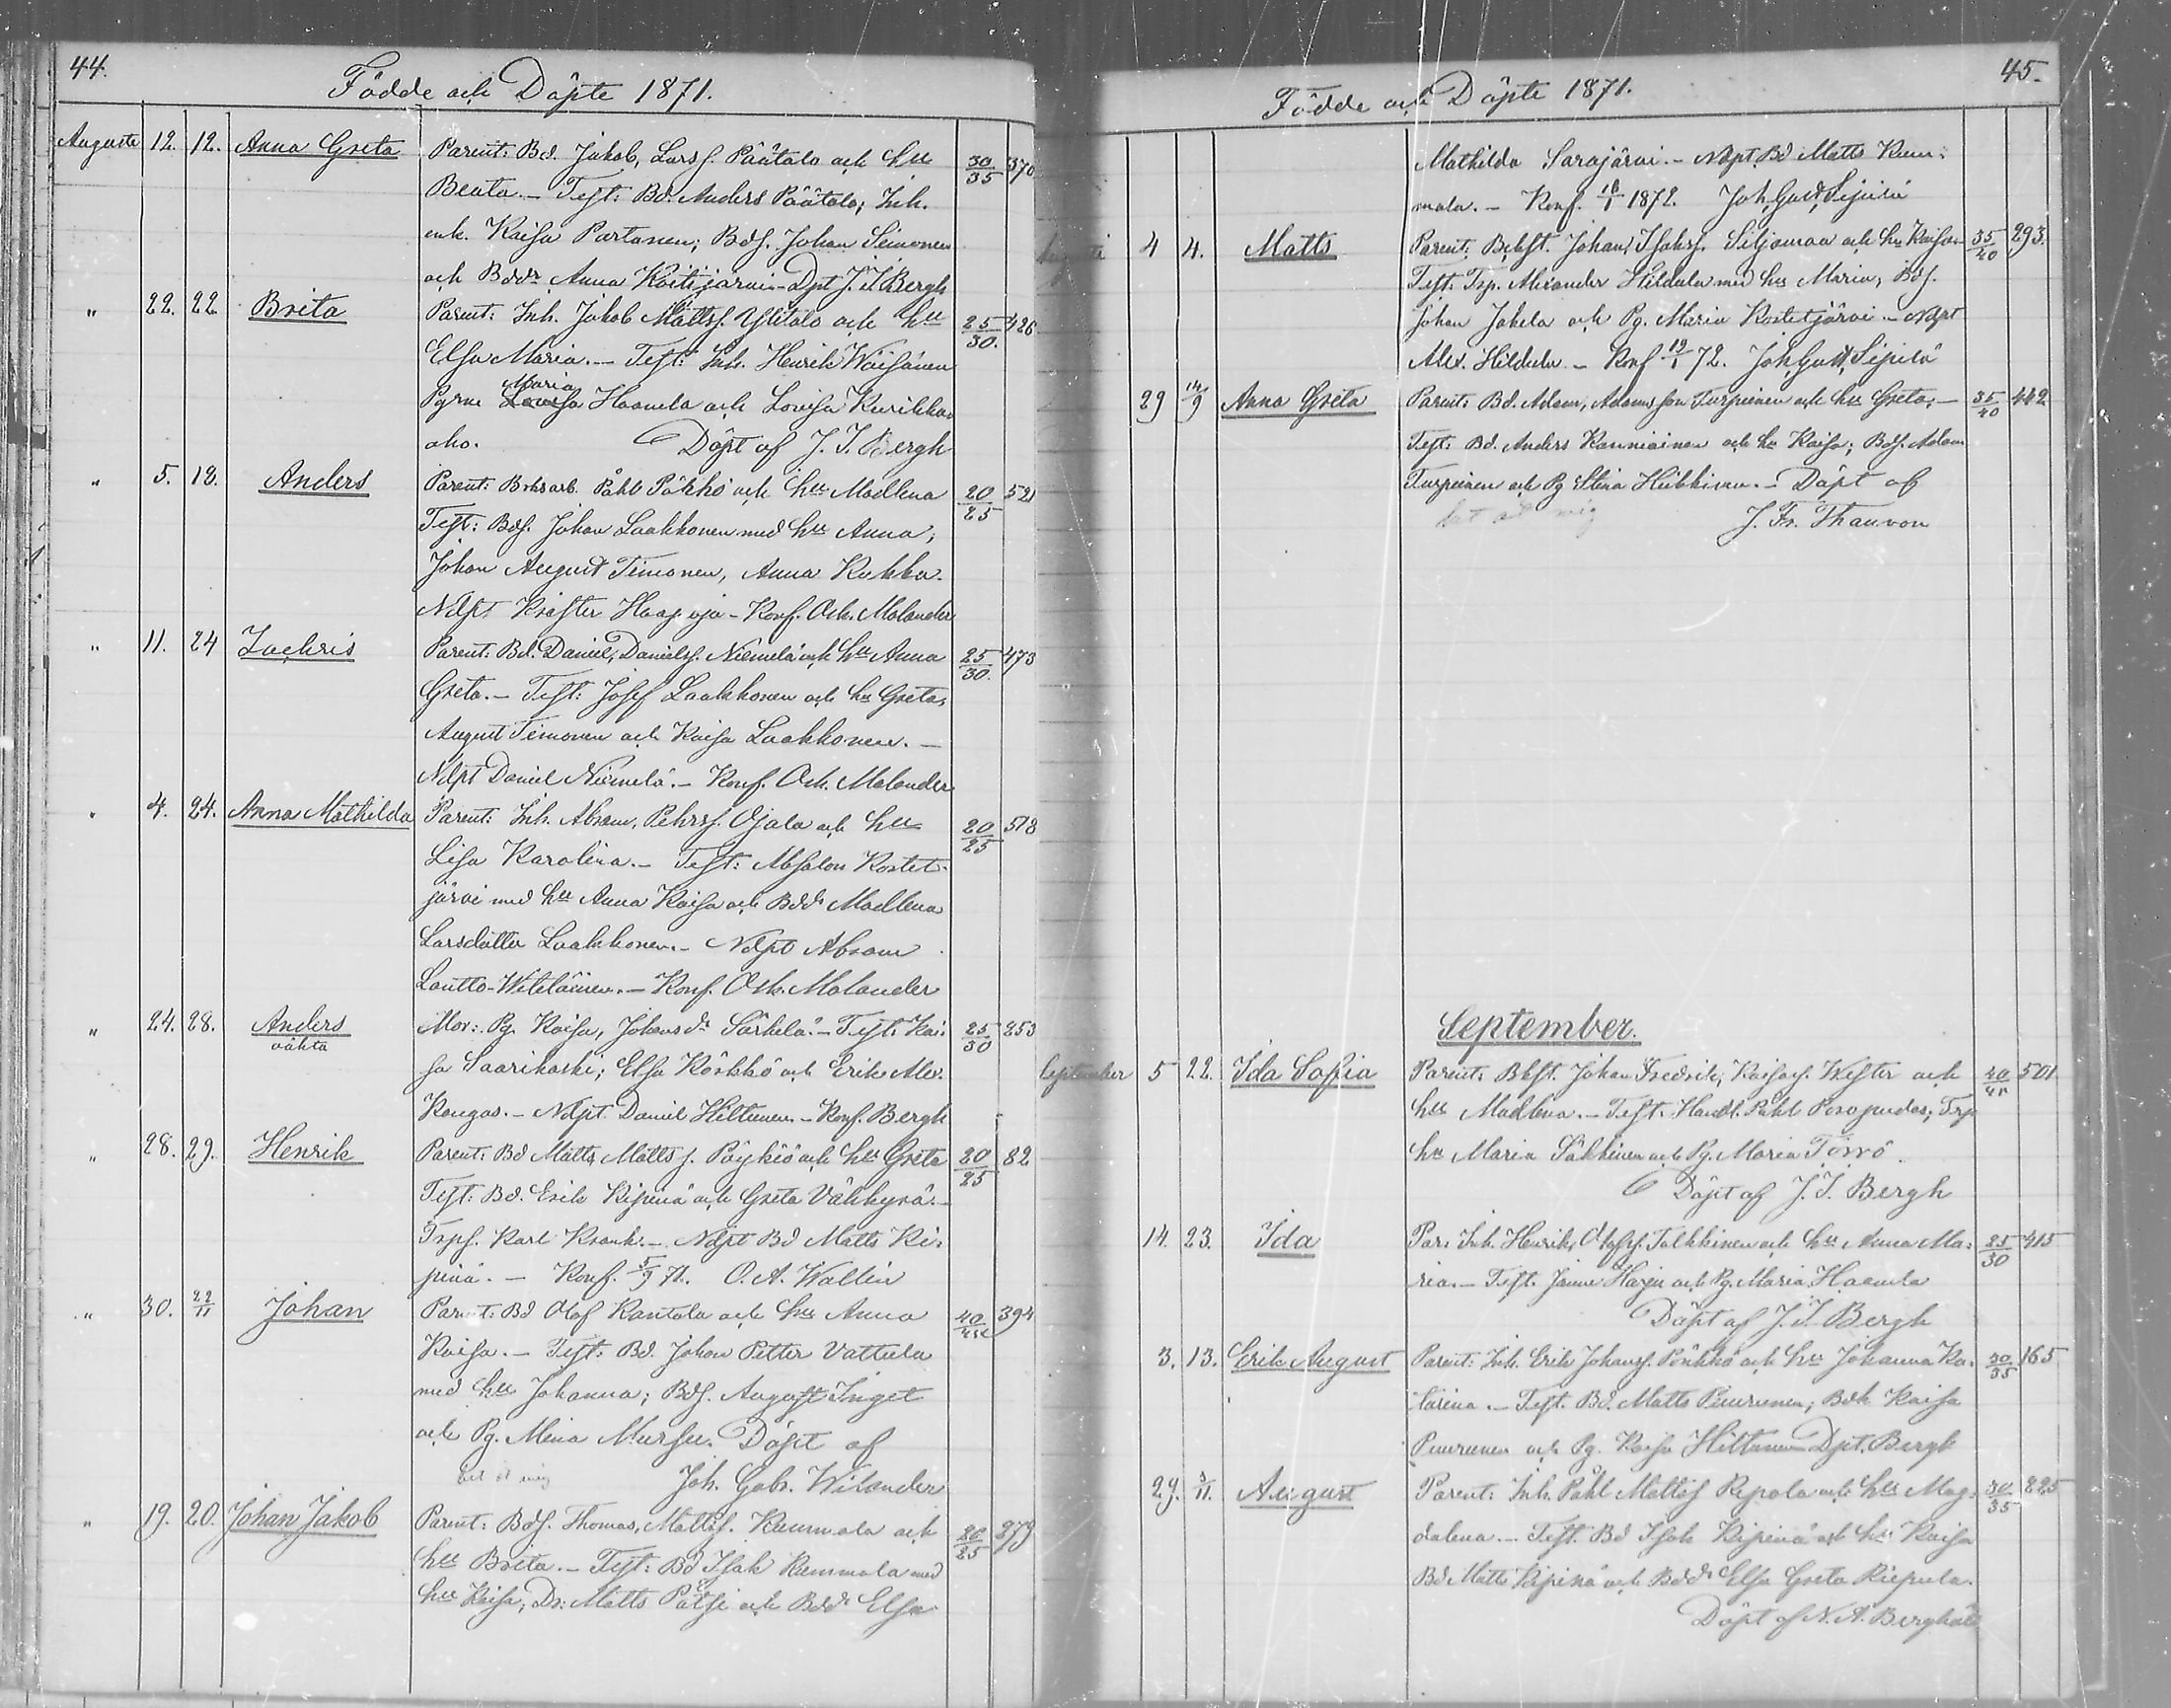 44.
Födde och Döpte 1871.
Augusti 12. 12. Anna Greta Parent: Bd. Jakob, Larsf. Päätalo och hu 30/35 370
Beata. – Test: Bd. Anders Päätalo; Inh.
enk. Kaisa Partanen; Bdf. Johan Seimonen
och Bddr Anna Kostijärvi – Dpt J. I. Bergh
" 22. 22 Brita Parent: Inh. Jakob Mattsf. Ylitalo och hu 25/30. 426
Elsa Maria. – Test: Inh. Henrik Wäisänen
Maria
Pgrne Lovisa Haamela och Lovisa Kurikka
aho. Döpt af J. I. Bergh
" 5. 12. Anders Parent: Påhl Pätkkö och hu Madlena 20/25 521
Test: Bdf. Johan Laakkonen med hu Anna;
Johan August Timonen, Anna Kukka.
Ndpt Krister Haapoja – Konf. Osk. Molander
" 11. 24 Zachris Parent: Bd. Daniel, Danielsf. Niemelä och hu Anna 25/30. 473
Greta. – Test: Josef Laakkonen och hu Greta,
August Timonen och Kaisa Laakkonen. –
Ndpt Daniel Niemelä. – Konf. Osk. Molander
" 4. 24. Anna Mathilda Parent: Inh. Abram, Pehrsf. Ojala och hu 20/25 518
Lisa Karolina. – Test: Absalon Kostet-
järvi med hu Anna Kaisa och Bddr Madlena
Larsdotter Laakkonen. – Ndpt Abram
Lautto-Witiläinen. – Konf. Osk. Molander
" 24. 28. Anders Mor: Pg. Kaisa, Johansdr Särkelä. – Test. Kai- 25/30 253
oäkta
sa Saarikoski; Elsa Körkkö och Erik Alex.
Kongas. – Ndpt Daniel Hiltunen – Konf. Bergh
" 28. 29. Henrik Parent: Bd Matts, Mattsf. Pöykiö och hu Greta 20/25 82
Test: Bd. Erik Kipinä och Greta Vähkyrä. –
Trpf. Karl Krank. – Ndpt Bd Matts Ki-
pinä. – Konf. 5/9 71. O. A. Wallin
" 30. 22/11 Johan Parent: Bd Olof Rantala och hu Anna 40/ 394
Kaisa. – Test: Bd. Johan Petter Vattula
med hu Johanna; Bdf. August Inget
och Pg. Mina Mursu. Döpt af
Joh. Gabr. Wilander
" 19. 20. Johan Jakob Parent: Bdf. Thomas, Mattsf. Kummala och 20/25 279
hu Brita. – Test: Bd Isak Kummala med
hu Kaisa; Dr: Matts Pätsi och Bddr Elsa
45.
Födde och Döpte 1871.
Mathilda Sarajärvi. – Ndpt. Bd Matts Kum-
mala. – Konf. 18/1 1872. Joh. Gust. Sipilä
Augusti 4 4. Matts Parent: Johan, Johsf. Siljomaa och hu Kaisa – 35/40 293.
Test: Trp. Alexander Hildula med hu Maria, Bdf.
Johan Jakela och Pg. Maria Kostetjärvi – Ndpt
Alex. Hildula – Konf 19/1 72. Joh. Gust. Sipilä
29 14/9 Anna Greta Parent: Bd. Adam, Adamsson Turpeinen och hu Greta, – 35/40 442
Test: Bd. Anders Kauniainen och hu Kaisa; Bdf. Adam
Turpeinen och Pg Stina Heikkinen. – Döpt af
J. Fr. Thauvon
September.
September 5 22. Ida Sofia Parent: Johan Fredrik, Kaisasf. Wester och 40/ 501
hu Madlena. – Test. Handl. Påhl Poropudas; Trp
hu Maria Säkkinen och Pg. Maria Törrö.
Döpt af J. I. Bergh
14. 23. Ida Par. Inh. Henrik, Olofsf. Talkkinen och hu Anna Ma- 25/30 415
ria. – Test. Janne Harju och Pg. Maria Haamela
Döpt af J. I. Bergh
3. 13. Erik August Parent: Inh. Erik Johansf. Pönkkö och hu Johanna Ka- 30/35 165
tarina. – Test. Bd. Matts Puurunen; Bdh Kaisa
Puurunen och Pg. Kaisa Hiltunen Dpt. Bergh
29. 5/11. August Parent: Inh. Påhl Mattsf Repola och hu Mag- 30/35 225
dalena. – Test. Bd Isak Kipinä och hu Kaisa
Bd. Matts Kipinä och Bddr Elsa Greta Riepula.
Döpt af N. A. Berghäll